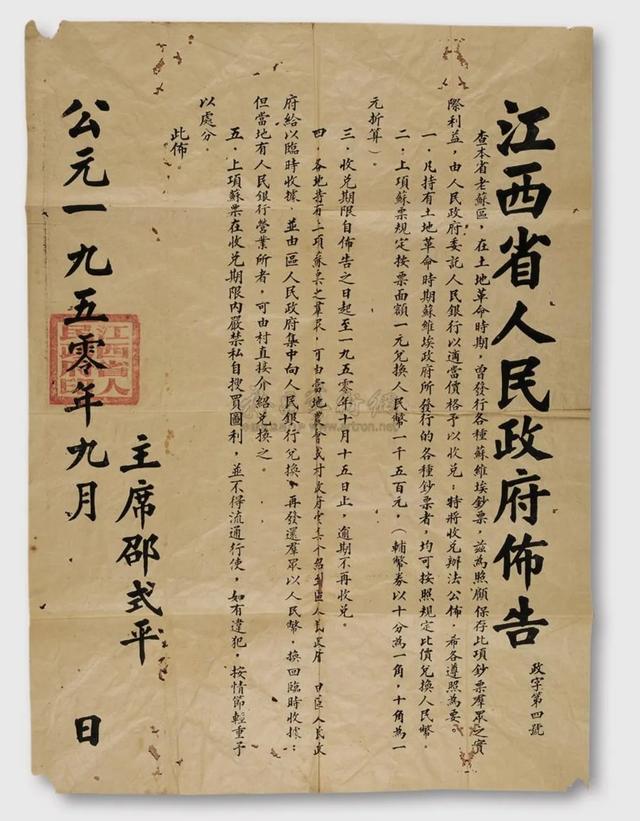 江西省人民政府佈告
政字第四號
查本省老蘇區，在土地革命時期，曾發行各種蘇維埃鈔票，茲為照顧保存此項鈔票羣眾之實
際利益，由人民政府委託人民銀行以適當價格予以收兌；特將收兌辦法公佈，希各遵照為要。
一．凡持有土地革命時期蘇維埃政府所發行的各種鈔票者，均可按照規定比價兌換人民幣。
二．上項蘇票規定按票面額一元兌換人民幣一千五百元，（輔幣券以十分為一角，十角為一
元折算）。
三．收兌期限自佈告之日起至一九五零年十月十五日止，逾期不再收兌。
四．各地持有上項蘇票之羣眾，可由當地農會或村政府介紹到區人民政府，由區人民政
府給以臨時收據，並由區人民政府集中向人民銀行兌換，再發還羣眾以人民幣，換回臨時收據；
但當地有人民銀行營業所者，可由村直接介紹兌換之。
五．上項蘇票在收兌期限內嚴禁私自搜買圖利，並不得流通行使，如有違犯，按情節輕重予
以處分。
此佈。
主席邵式平
公元一九五零年九月 日
江西省人民政府印